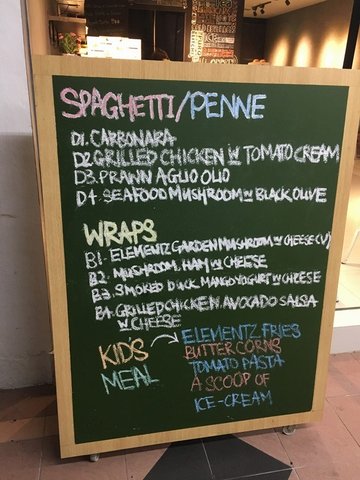 SPAGHETTI/PENNE
D1. CARBONARA
D2 GRILLED CHICKEN W TOMATO CREAM
D3. PRAWN AGLIO OLIO
D4. SEAFOOD MUSHROOM W BLACK OLIVE
WRAPS
B1. ELEMENTZ GARDEN MUSHROOM W CHEESE (V)
B2. MUSHROOM, HAM W CHEESE
B3. SMOKED DUCK, MANGO YOGURT W CHEESE
B4. GRILLED CHICKEN, AVOCADO SALSA
W CHEESE
KID'S
MEAL
ELEMENTZ FRIES
BUTTER CORNS
TOMATO PASTA
A SCOOP OF
ICE-CREAM